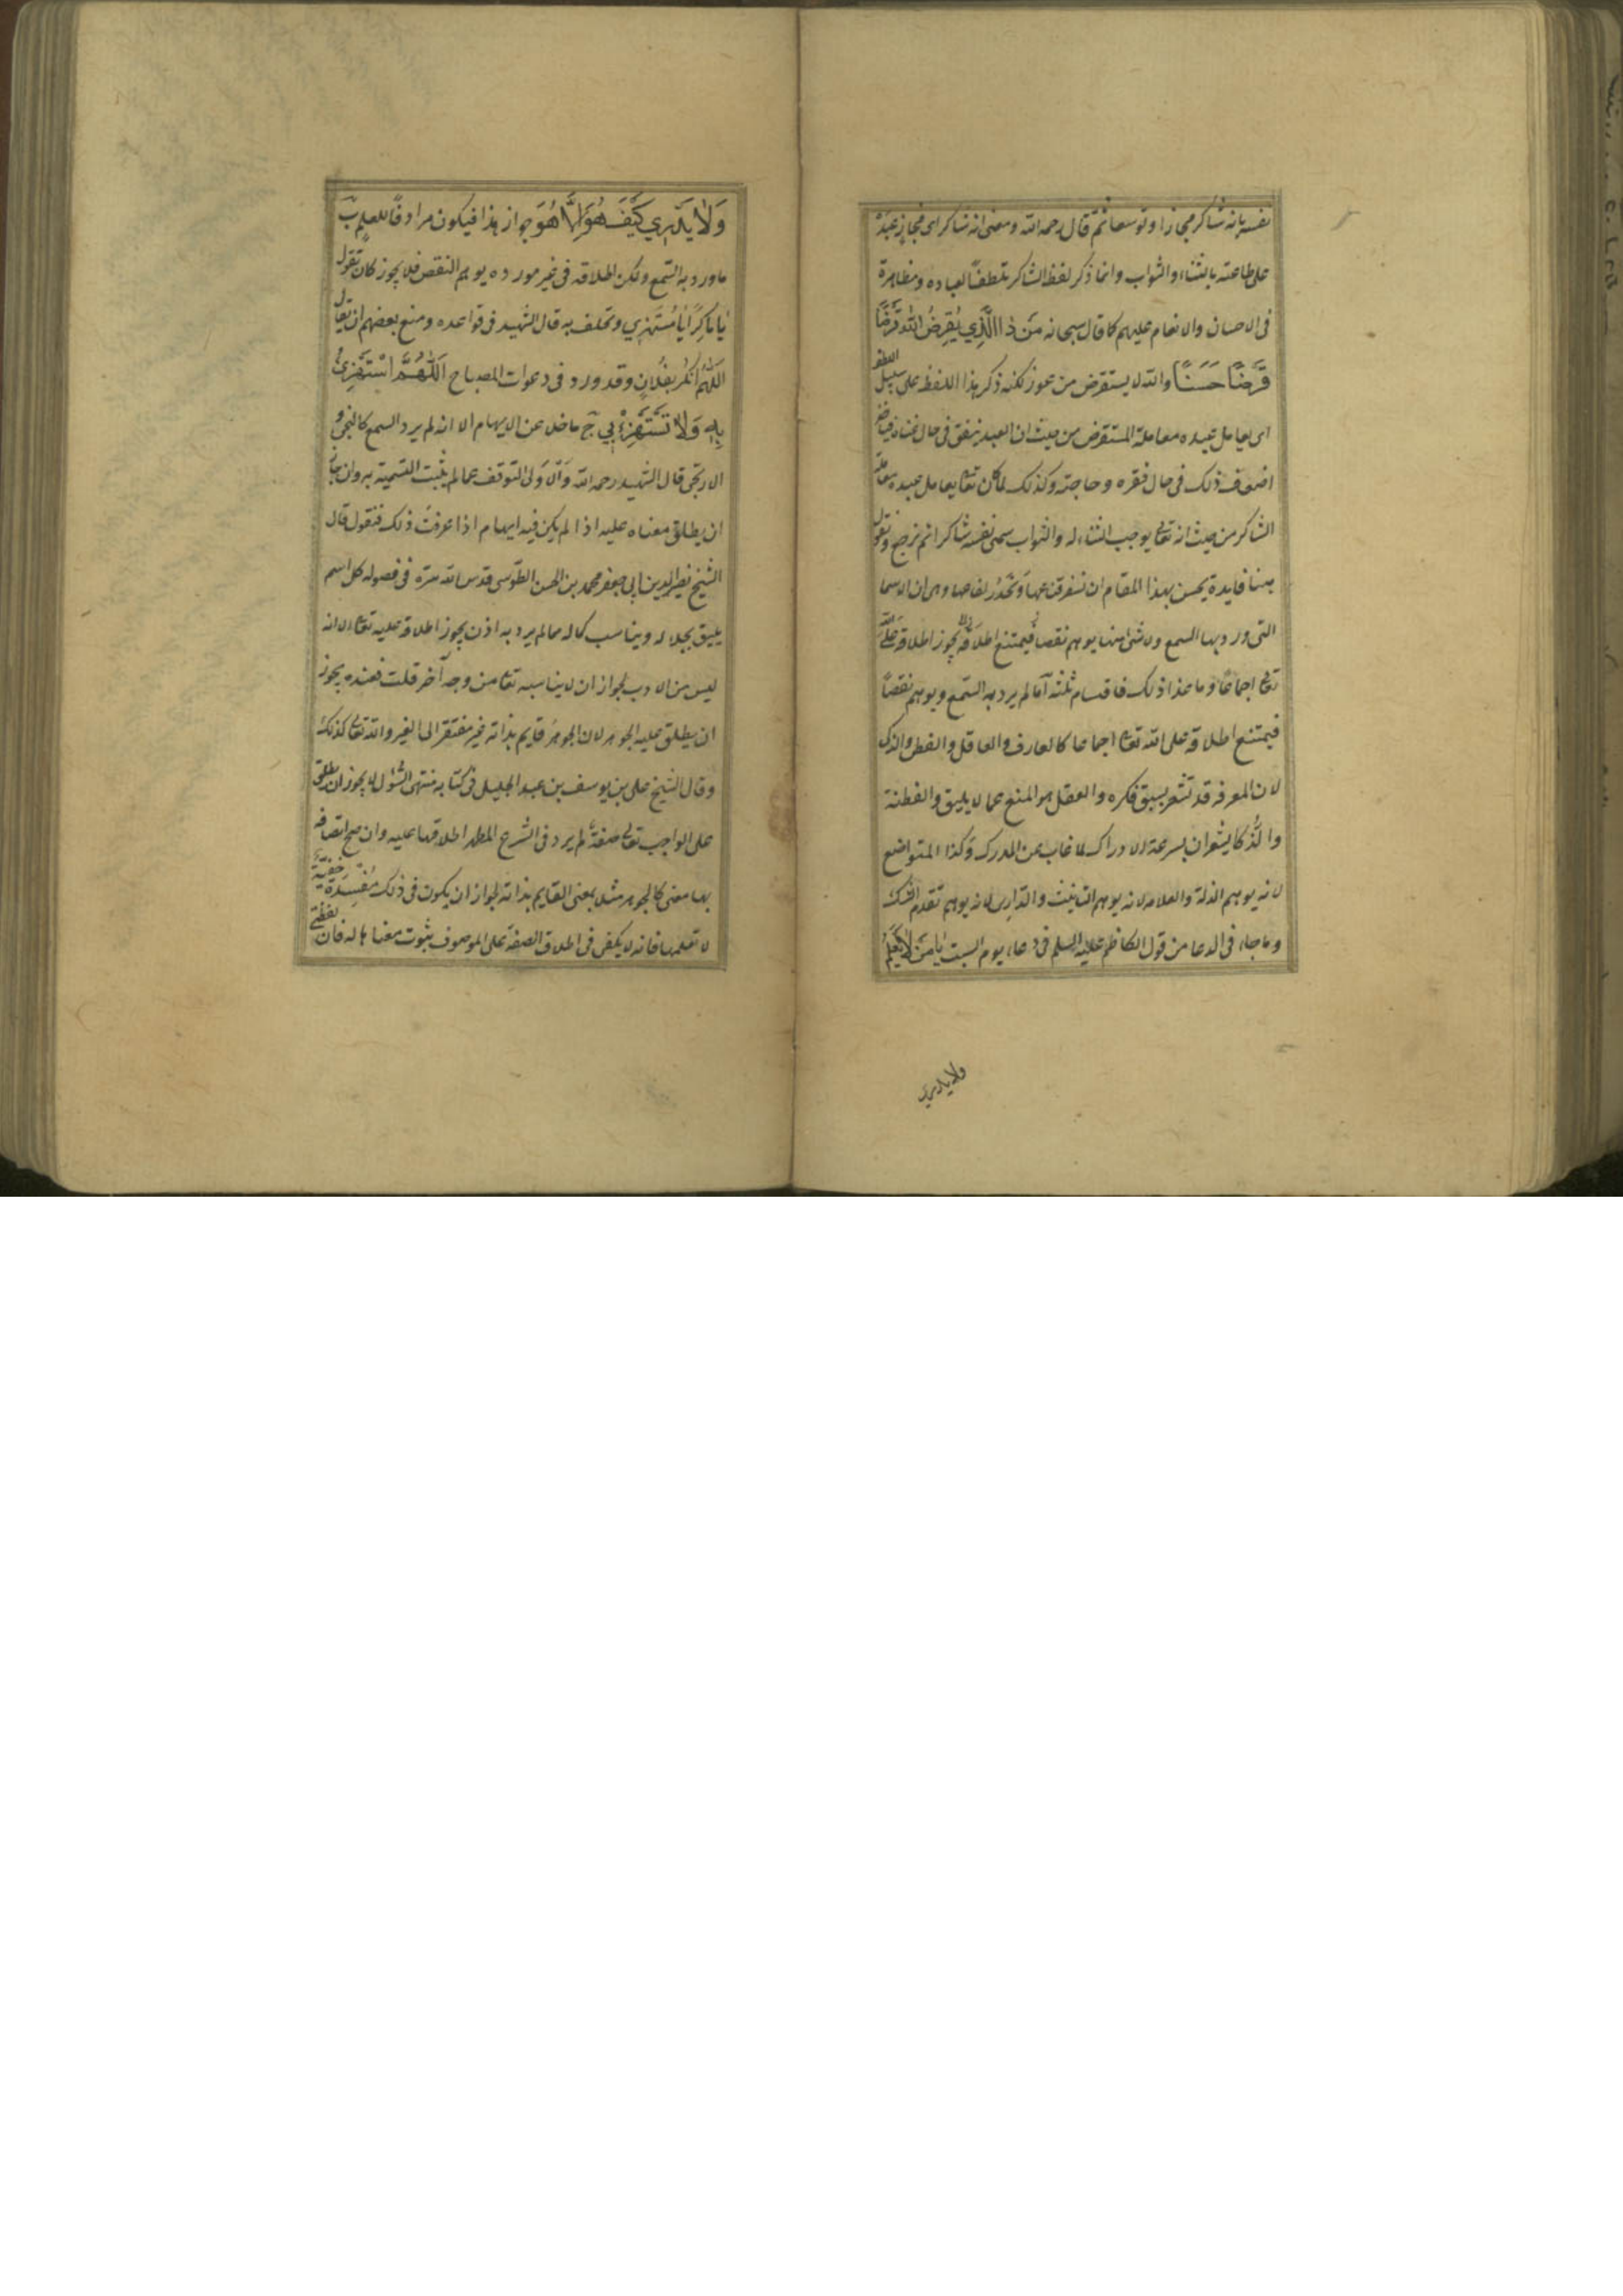 نفسه بانه شاكر مجازا وتوسعا ثم قال رحمه الله ومعنى انه شاكر اى مجاز عبده
على طاعته بالثناء والثواب وانما ذكر لفظ الشاكر تلطفا لعباده ومظاهرة
فى الاحسان والانعام عليهم كما قال سبحانه مَنْ ذَا الَّذِي يُقْرِضُ اللهَ قَرْضًا
قَرْضًا حَسَنًا والله لا يستقرض من عوز لكنه ذكر هذا اللفظ على سبيل اللطف
اى يعامل عبده معاملة المستقرض من حيث ان العبد ينفق فى حال غناه
اضعاف ذلك فى حال فقره وحاجته وكذلك لما كان تعالى يعامل عبده معاملة
الشاكر من حيث انه تعالى يوجب الثناء له والثواب سمى نفسه شاكرا ثم نرجع ونقول
هنا فايدة يحسن بهذا المقام ان نسفر قناعها ونحدر لفاعها وهى ان الاسما
التى ورد بها السمع ولا شىء منها يوهم نقصا يجوز اطلاقه على الله
تعالى اجماعًا وما عدا ذلك فاقسام ثلثه آ ما لم يرد به السّمع ويوهم نقصًا
فيمتنع اطلاقه على الله تعالى اجماعا كالعارف والعاقل والفطن والذكى
لان المعرفة قد تشعر بسبق فكره والعقل هو المنع عما لا يليق والفطنة
والذَّكا يشعران بسرعة الادراك لما غاب عن المدرك وكذا المتواضع
لانه يوهم الذلة والعلامه لانه يوهم التانيث والدارى لانه يوهم تقدم الشك
وما جاء فى الدعا من قول الكاظم عليه السلم فى دعاء يوم السبت يَا مَنْ لَا يَعْلَمُ
ولا يدرى
وَلَا يَدْرِي كَيْفَ هُوَ اِلَّا هُوَ جواز هذا فيكون مرادفًا للعلم ب
ما ورد به السّمع ولكن اطلاقه فى غير مورده يوهم النقص فلا يجوز كان تقول
يَا مَاكِرُ يَا مُسْتَهْزِي وتحلف به قال الشهيد فى قواعده ومنع بعضهم ان يقال
اَللّٰهُمَّ امْكُرْ بِفُلَانٍ وقد ورد فى دعوات المصباح اَللّٰهُمَّ اسْتَهْزِئْ
بِهِ وَلَا تَسْتَهْزِءْ بِي ج ما خلى عن الايهام الا انه لم يرد السمع كالنجى و
الاريحى قال الشهيد رحمه الله وَالْاَوْلى التّوقف عما لم يثبت التسمية به وان جاز
ان يطلق معناه عليه اذا لم يكن فيه ايهام اذا عرفت ذلك فنقول قال
الشيخ نصير الدين ابى جعفر محمد بن الحسن الطّوسى قدس الله سرّه فى فصوله كل اسم
يليق بجلاله ويناسب كماله مما لم يرد به اذن يجوز اطلاقه عليه تعالى الا انه
ليس من الادب لجواز ان لا يناسبه تعالى من وجه آخر قلت فعنده يجوز
ان يطلق عليه الجوهر لان الجوهر قايم بذاته غير مفتقر الى الغير والله تعالى كذلك
وقال الشيخ على بن يوسف بن عبد الجليل فى كتابه منتهى السُّؤل لا يجوز ان يطلق
على الواجب تعالى صفة لم يرد فى الشرع المطهر اطلاقها عليه وان صح اتصافه
بها معنى كالجوهر مثلا بمعنى القايم بذاته لجواز ان يكون فى ذلك مَفْسدة خفيّة
لا نعلمها فانه لا يكفى فى اطلاق الصفة على الموصوف ثبوت معناها له فان لفظتى